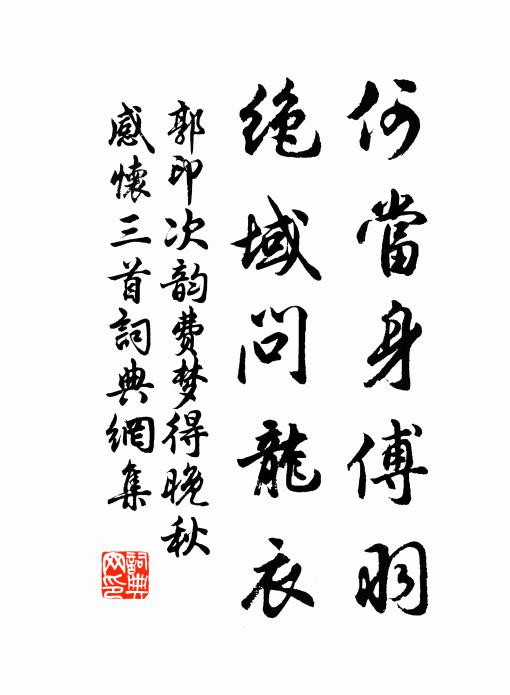 何當身傅羽
絶域問龍衣
郭印次韵費梦得晚秋
感懷三首詞典網集
詞典網印